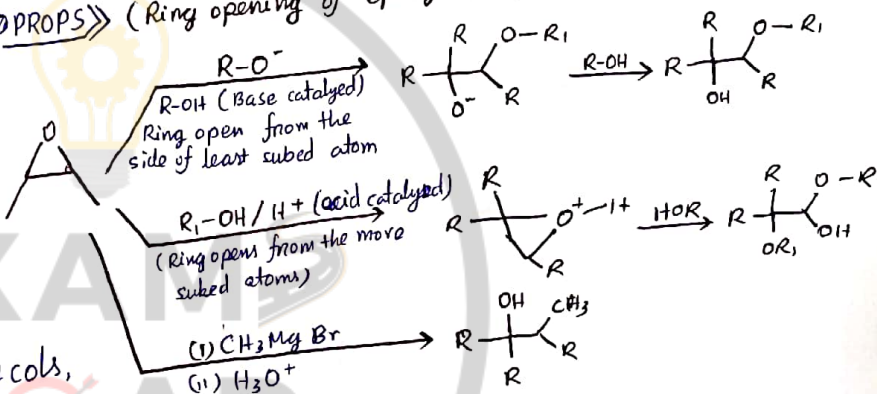 PROPS>> (Ring opening of
R-O⁻
R-OH (Base catalyed)
Ring open from the
side of least subed atom
O
R O-R₁
R
O⁻ R
R-OH
R O-R₁
R
OH R
R₁-OH/H+ (acid catalyzed)
(Ring opens from the more
subed atoms)
R
R O⁺-H
R
HOR
R O-R
R OH
OR₁
(i) CH₃MgBr
(ii) H₃O⁺
OH CH₃
R
R R
cols,